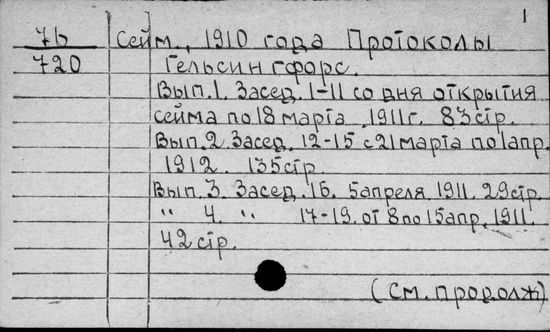 1
76 Сейм., 1910 года Протоколы
720 Гельсингфорс.
Вып. 1. Засед. 1-11 со дня открытия
сейма по 18 марта 1911 г. 83 стр.
Вып. 2. Засед. 12-15 с 21 марта по 1 апр.
1912. 135 стр
Вып. 3. Засед. 16. 5 апреля. 1911. 29 стр.
" 4. " 17-19. от 8 по 15 апр. 1911.
42 стр.
(См. продолж)